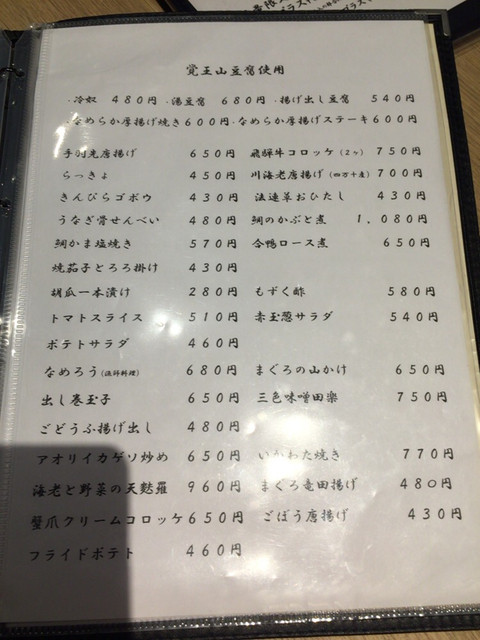 覚王山豆腐使用
・冷奴 480円 ・湯豆腐 680円 ・揚げ出し豆腐 540円
・なめらか厚揚げ焼き600円・なめらか厚揚げステーキ600円
手羽先唐揚げ 650円 飛騨牛コロッケ(2ヶ) 750円
らっきょ 450円 川海老唐揚げ(四万十産) 700円
きんぴらゴボウ 430円 法連草おひたし 430円
うなぎ骨せんべい 480円 鯛のかぶと煮 1,080円
鯛かま塩焼き 570円 合鴨ロース煮 650円
焼茄子とろろ掛け 430円
胡瓜一本漬け 280円 もずく酢 580円
トマトスライス 510円 赤玉葱サラダ 540円
ポテトサラダ 460円
なめろう(漁師料理) 680円 まぐろの山かけ 650円
出し巻玉子 650円 三色味噌田楽 750円
ごどうふ揚げ出し 480円
アオリイカゲソ炒め 650円 いかわた焼き 770円
海老と野菜の天麩羅 960円 まぐろ竜田揚げ 480円
蟹爪クリームコロッケ650円 ごぼう唐揚げ 430円
フライドポテト 460円